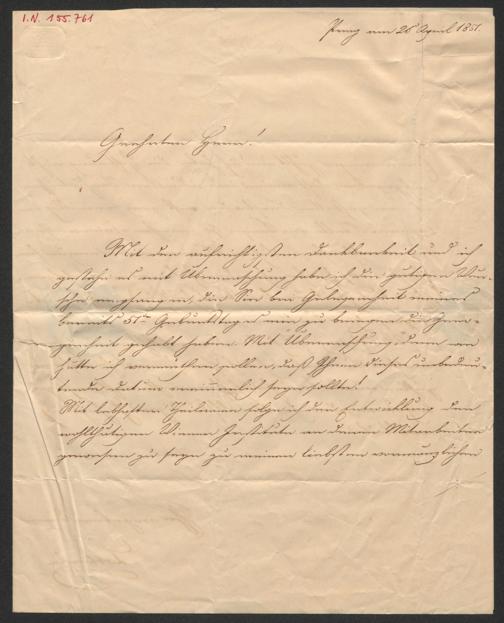 I.N. 155.761
Prag am 26 April 1851.
Geehrter Herr!
Mit der aufrichtigsten Dankbarkeit und ich
gestehe es mit Überraschung habe ich die gütigen Wün-
sche empfangen, die Sie bei Gelegenheit meines
bereits 51ten Geburtstages mir zu bringen die Gewo-
genheit gehabt haben. Mit Überraschung, denn wie
hätte ich vermuthen sollen, daß Ihnen dieses unbedeu-
tende Datum erinnerlich seyn sollte!
Mit lebhaftem Theilnahme folge ich der Entwicklung der
wohlthätigen Wiener Institute an denen Mitarbeiter
gewesen zu seyn zu meinen liebsten